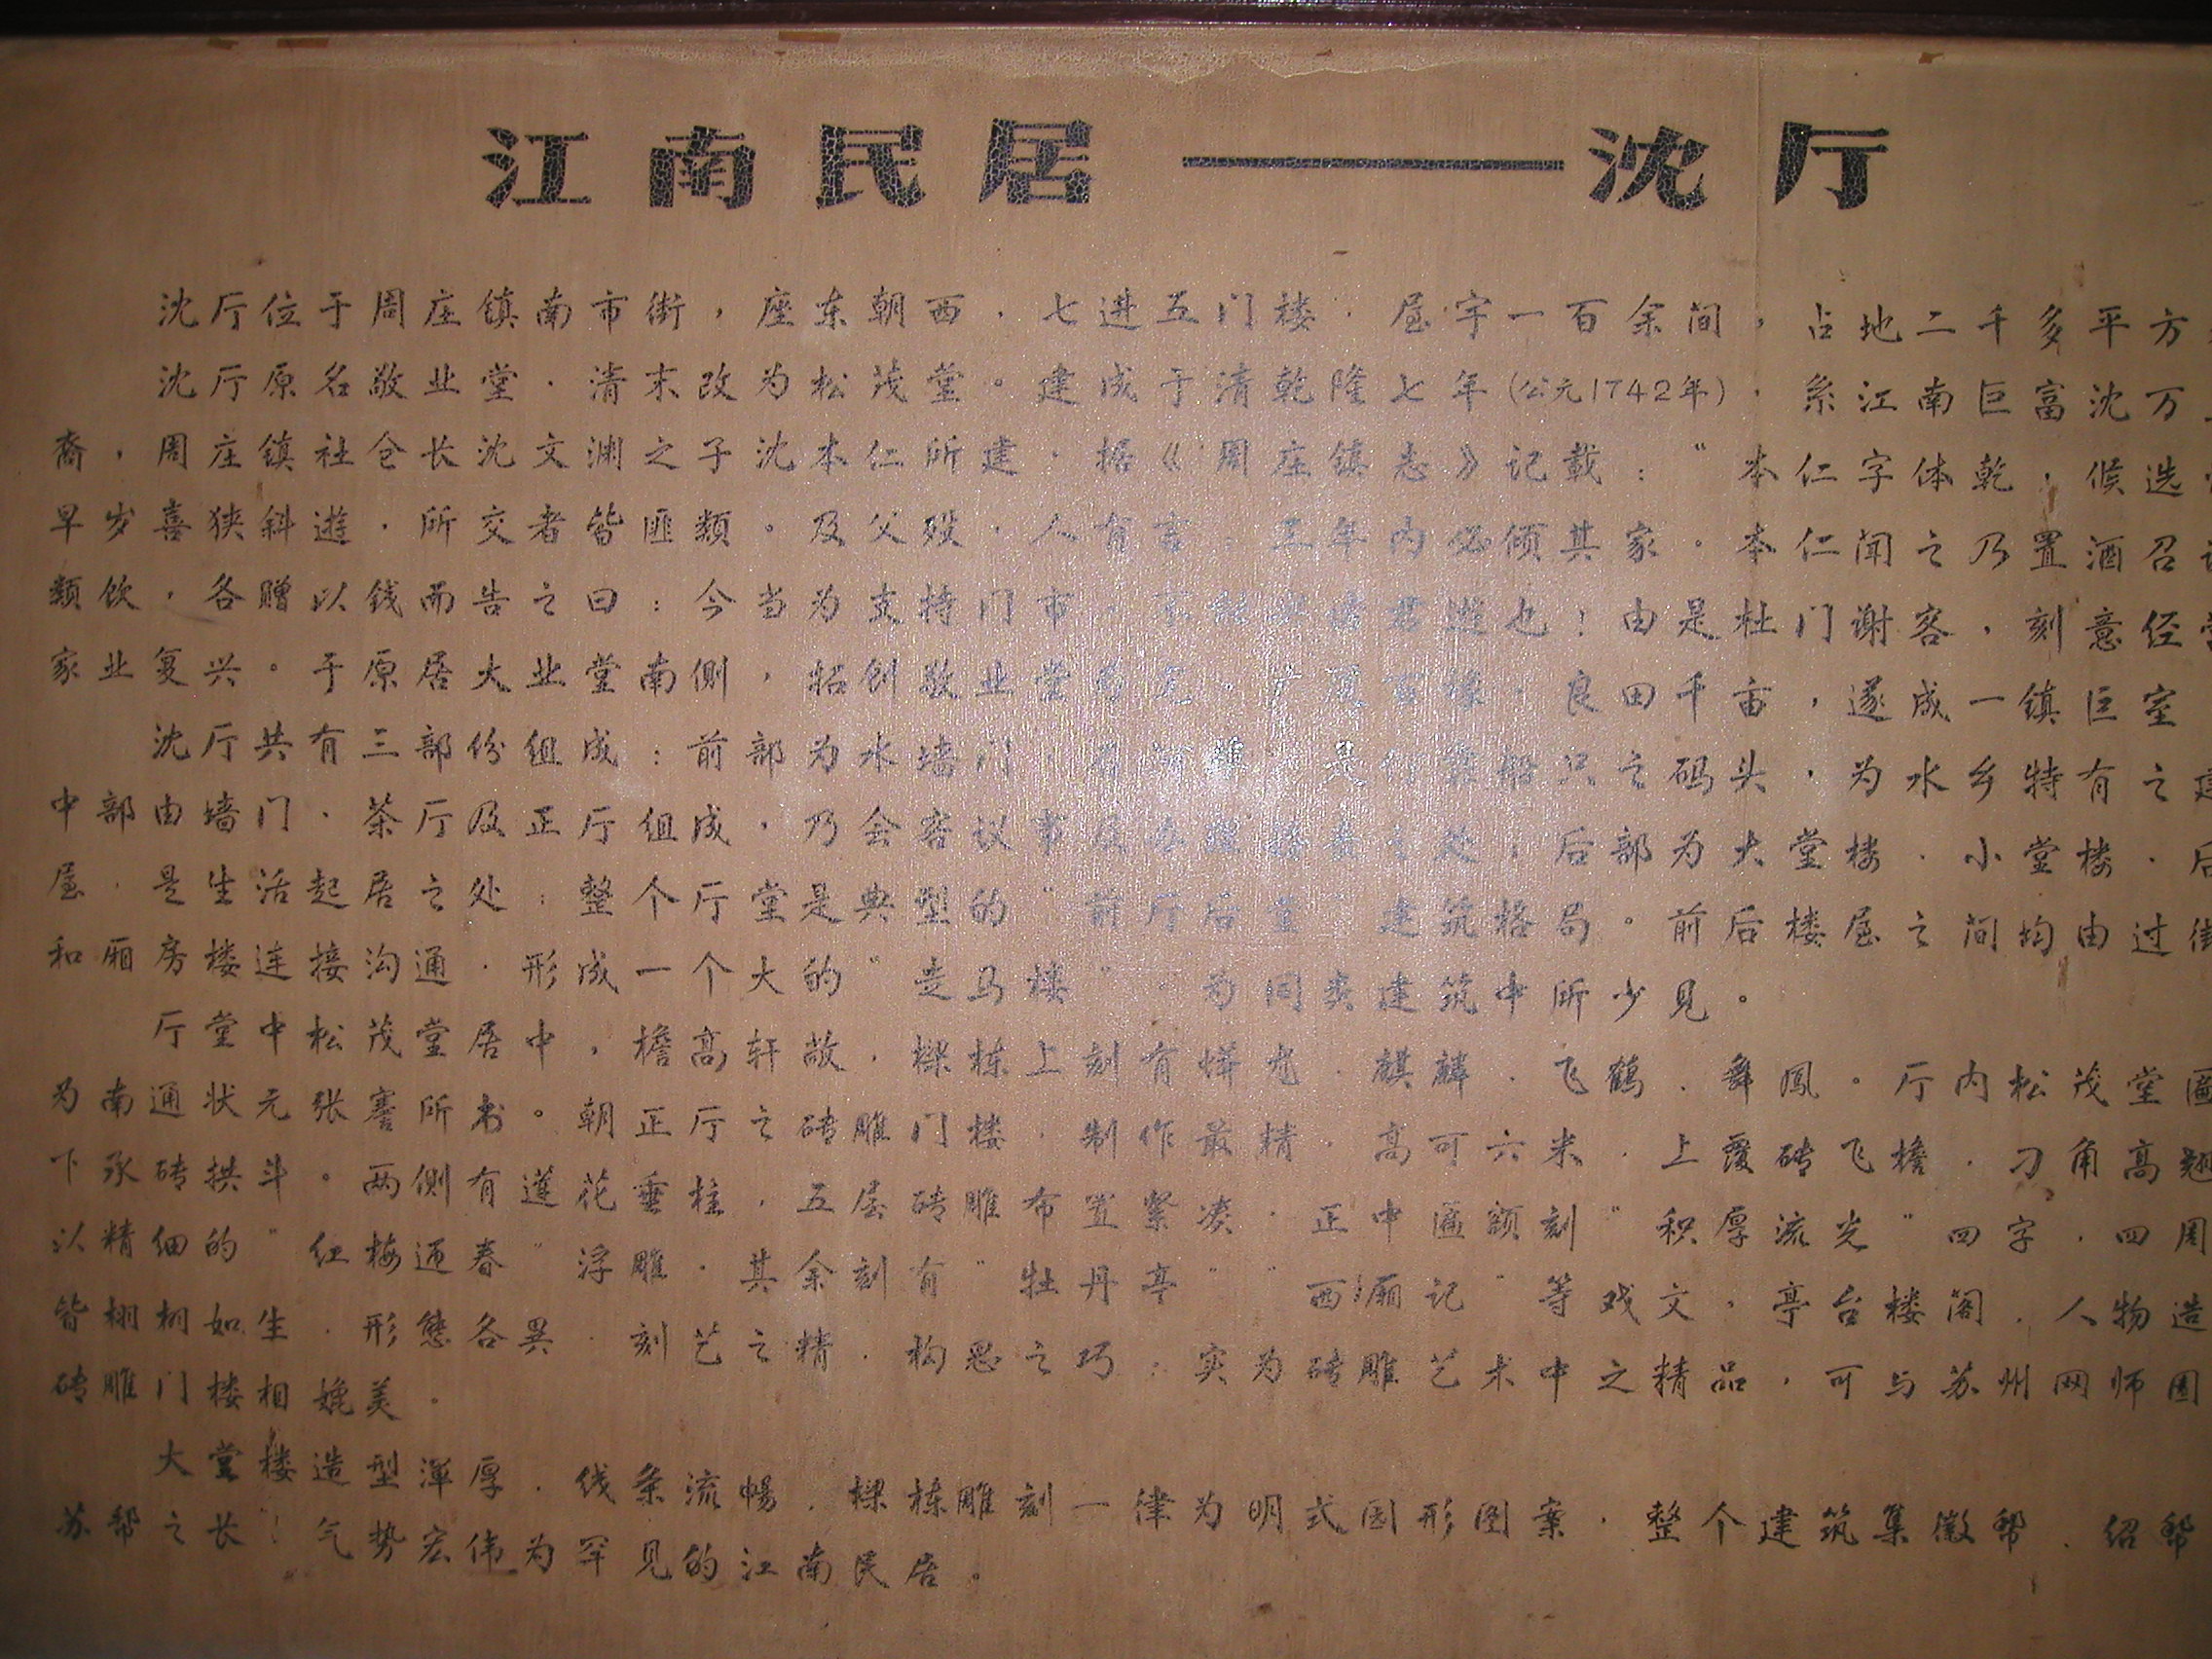 江南民居——沈厅
沈厅位于周庄镇南市街，座东朝西．七进五门楼．屋宇一百余间，占地二千多平方
沈厅原名敬业堂．清末改为松茂堂。建成于清乾隆七年(公元1742年)．系江南巨富沈万
裔，周庄镇社仓长沈文渊之子沈本仁所建．据《周庄镇志》记载："本仁字体乾，候选
早岁喜狭斜遊．所交者皆匪類．及父殁．人有言：三年内必倾其家．本仁闻之乃置酒召
類饮，各赠以钱而告之曰：今当为支持门市．君遊也！由是杜门谢客，刻意经
家业复兴。于原居大业堂南侧，拓创敬业堂．良田千亩，遂成一镇巨室
沈厅共有三部份组成：前部为水墙门．是船只之码头，为水乡特有之建
中部由墙门．茶厅及正厅组成，乃会客议事处；后部为大堂楼．小堂楼．后
屋．是生活起居之处；整个厅堂是典型的"前厅后堂"建筑格局。前后楼屋之间均由过街
和厢房楼连接沟通．形成一个大的"走马楼"．为同类建筑中所少见。
厅堂中松茂堂居中，檐高轩敞．樑栋上刻有蟒龙．麒麟．飞鹤．舞凤。厅内松茂堂匾
为南通状元张謇所书。朝正厅之砖雕门楼．制作最精．高可六米．上覆砖飞檐．刁角高翘
下承砖拱斗。两侧有莲花垂柱．五层砖雕布置紧凑．正中匾额刻"积厚流光"四字．四周
以精细的"红梅迎春"浮雕．其余刻有"牡丹亭""西厢记"等戏文．亭台楼阁．人物造
皆栩栩如生．形態各異．刻艺之精．构思之巧；实为砖雕艺术中之精品，可与苏州网师园
砖雕门楼相媲美．
大堂楼造型渾厚．线条流暢．樑栋雕刻一律为明式园形图案．整个建筑集徽帮．绍帮
苏帮之长！气势宏伟为罕见的江南民居。